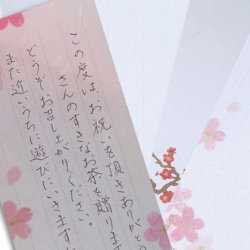 この度は、お祝いを頂きありがとう
さんのすきなお茶を贈りま
どうぞお召し上がりください。
また近いうちに遊びにいきます